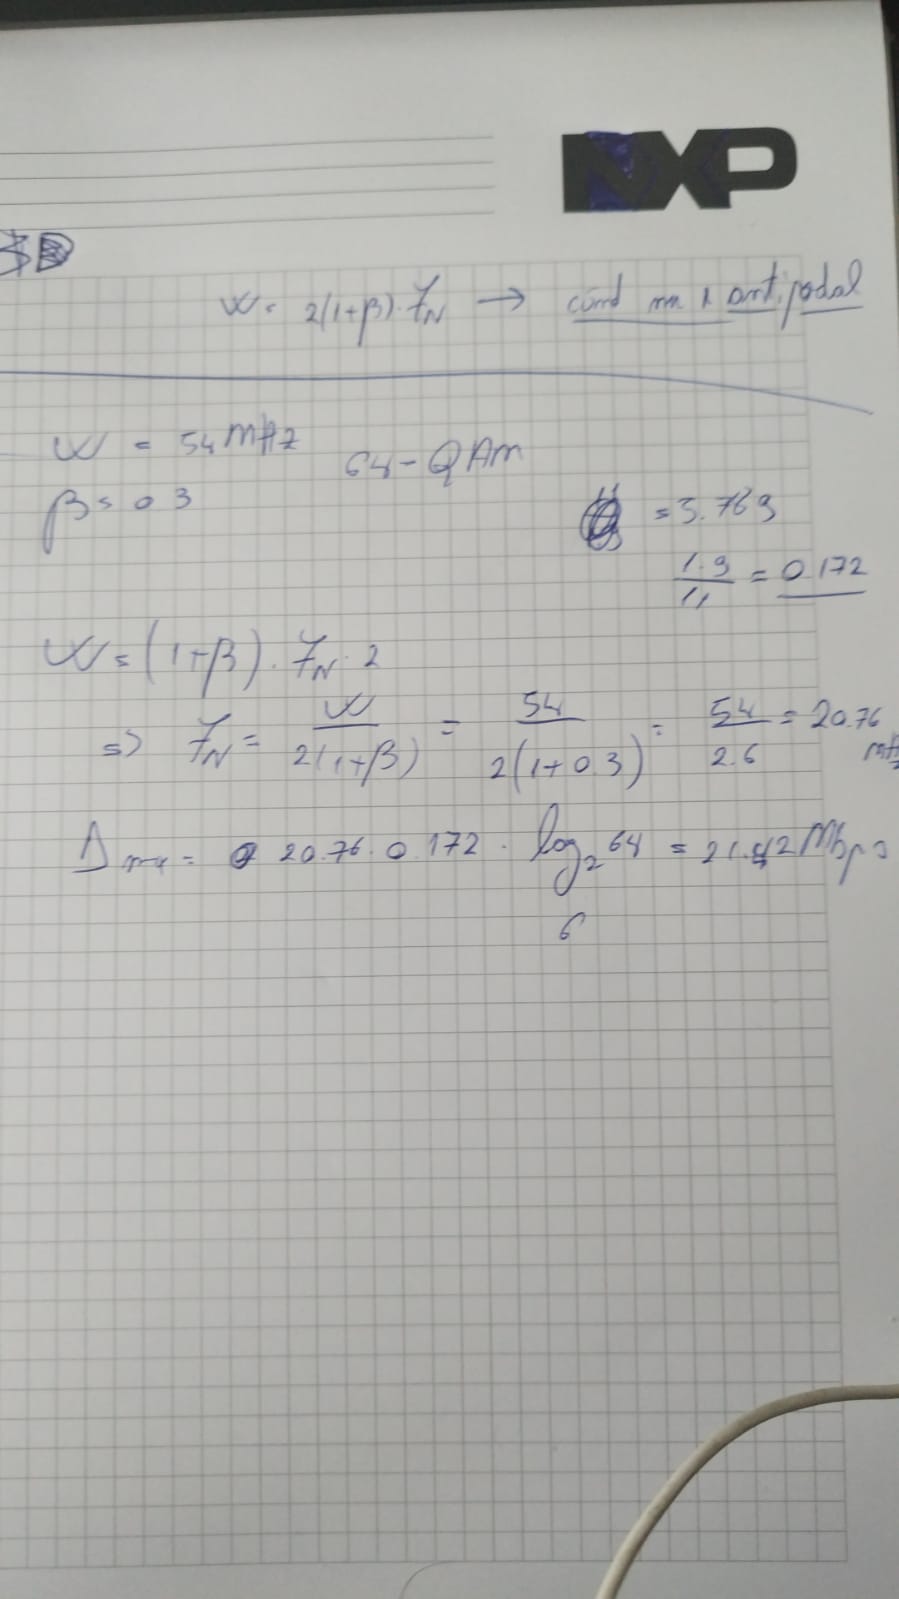 NXP
W = 2(1+β)·f_N → când nu e antipodal
W = 54 MHz
64-QAM
β = 0.3
= 3.789
1.9/11 = 0.172
W = (1+β)·f_N·2
=> f_N = W/2(1+β) = 54/2(1+0.3) = 54/2.6 = 20.76 MHz
= 20.76·0.172·log_2 64 = 21.42 Mbps
6